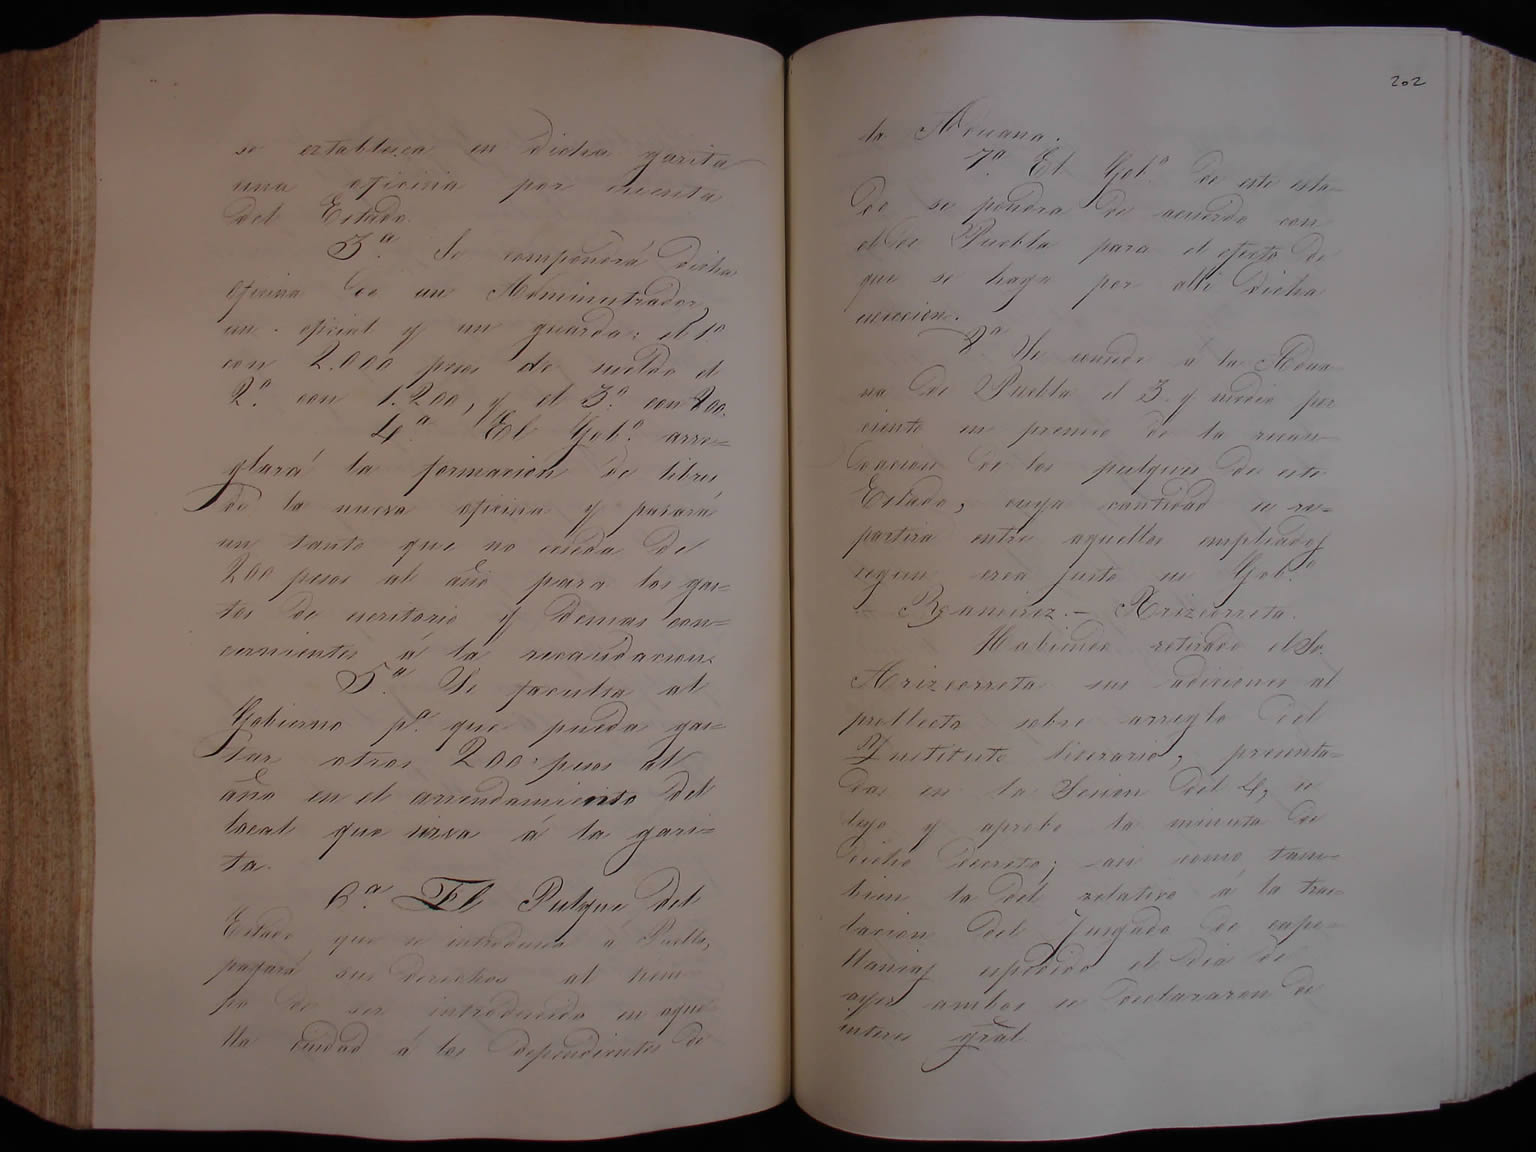 se establesca en dicha garita
una oficina por cuenta
del Estado.
3.ª Se compondrá dicha
oficina de un Administrador,
un oficial y un guarda: el 1º
con 2.000 pesos de sueldo el
2.º con 1.200, y el 3.º con 800.
4.ª El Gob.º arre=
glará la formacion de libros
de la nueva oficina y pasará
un tanto que no eceda de
200 pesos al año para los gas=
tos de escritorio y demas con=
cernientes á la recaudacion.
5.ª Se faculta al
Gobierno p.ª que pueda gas=
tar otros 200 pesos al
año en el arrendamiento del
local que sirva á la gari=
ta.
6.ª El Pulque del
Estado que se introdusca á Puebla,
pagará sus derechos al tiem
po de ser introducido en aque
lla ciudad á los dependientes de
202
la Aduana.
7.ª El Gob.º de este esta=
do se pondra de acuerdo con
el de Puebla para el efecto de
que se haga por alli dicha
eccecion.
8.ª Se concede á la Adua
na de Puebla el 3 y medio por
ciento en premio de la recau
dacion de los pulques de este
Estado, cuya cantidad se re=
partirá entre aquellos empleados
segun crea justo su Gob.º
.= Ramirez.= Arizcorreta.
Habiendo retirado el Sr.
Arizcorreta sus adiciones al
prollecto sobre arreglo del
Ynstituto literario, presenta=
das en la Sesion del 4, se
leyo y aprobo la minuta de
dicho decreto; asi como tam=
bien la del relativo á la tras=
lacion del Jusgado de cape=
llanias espedido el dia de
ayer ambos se declararon de
interes gral.